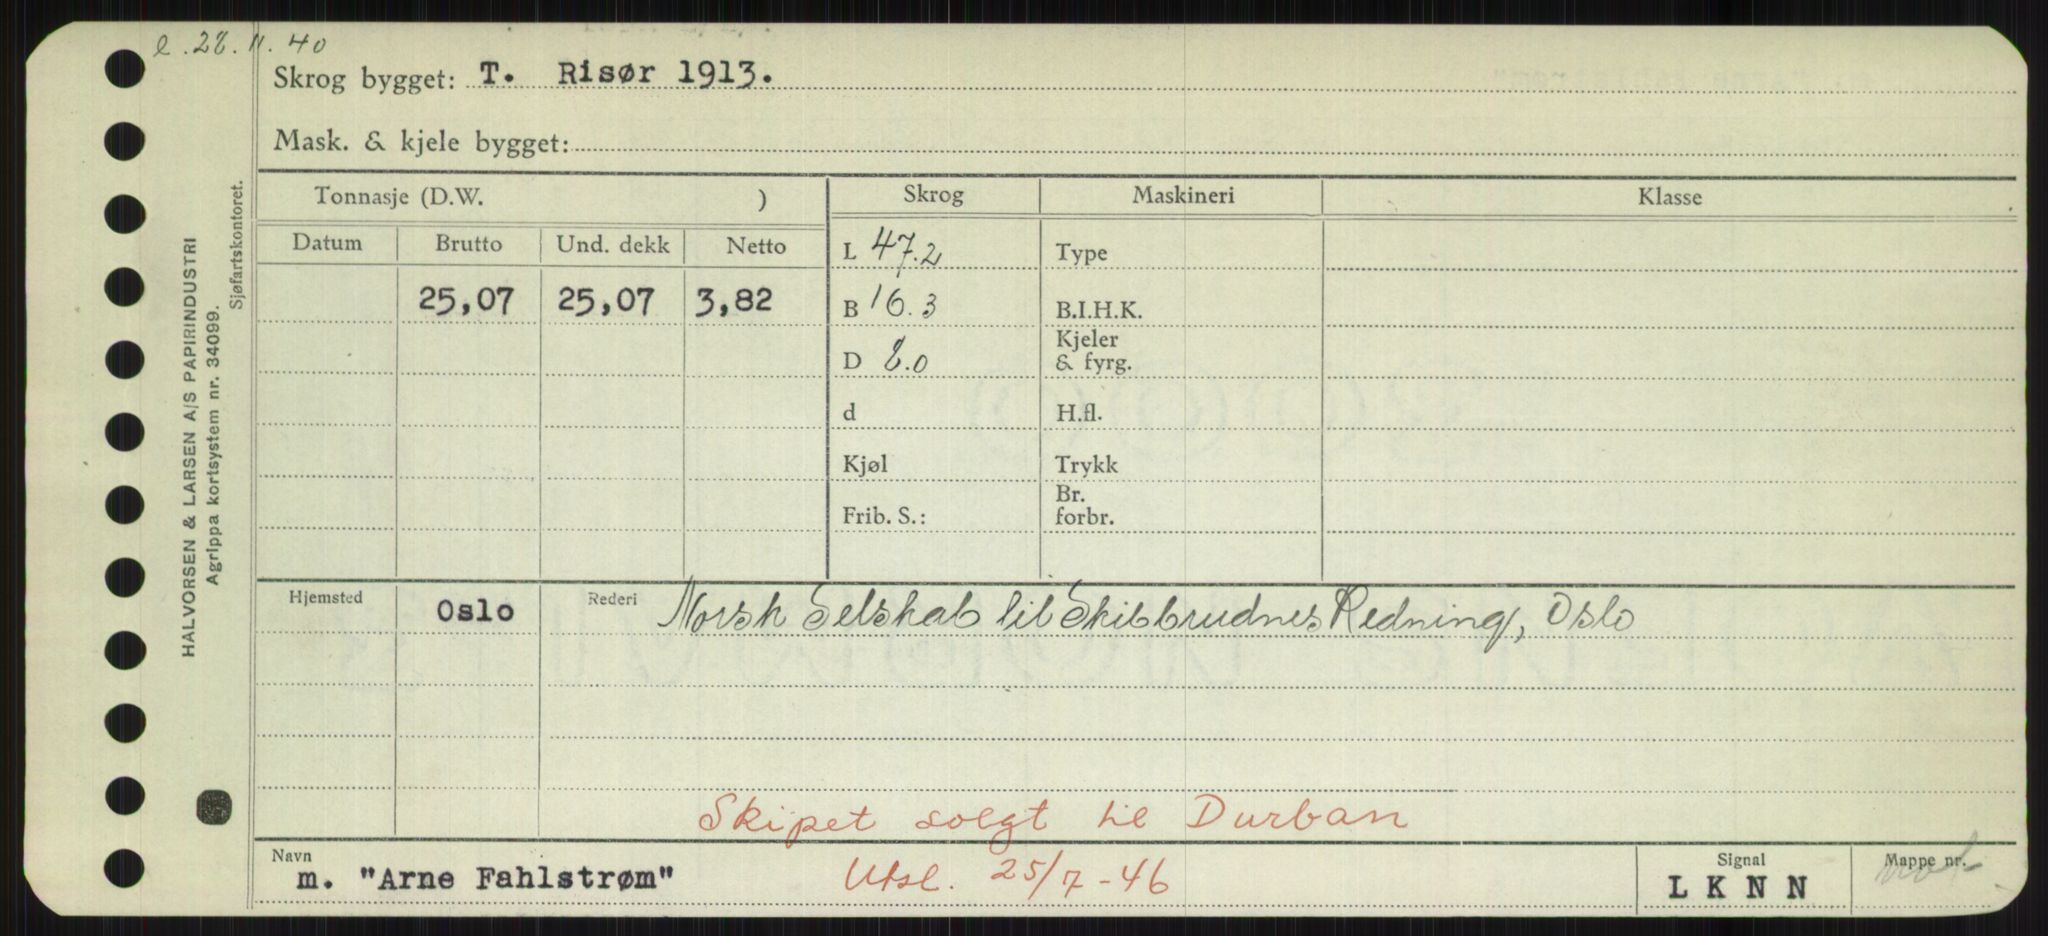 e. 28. 11. 40
Skrog bygget: T. Risør 1913.
Mask. & kjele bygget:
HALVORSEN & LARSEN A/S PAPIRINDUSTRI
Agrippa kortsystem nr. 34099.
Sjøfartskontoret.
Tonnasje (D.W. ) Skrog Maskineri Klasse
Datum Brutto Und. dekk Netto
L 47.2 Type
25,07 25,07 3,82 B 16.3 B.I.H.K.
D 8.0 Kjeler & fyrg.
d H.fl.
Kjøl Trykk
Frib. S.: Br. forbr.
Hjemsted Oslo Rederi Norsk Selskab til Skibbrudnes Redning, Oslo
Skipet solgt til Durban
Navn m. "Arne Fahlstrøm" Utsl. 25/7-46 Signal LKNN Mappe nr.